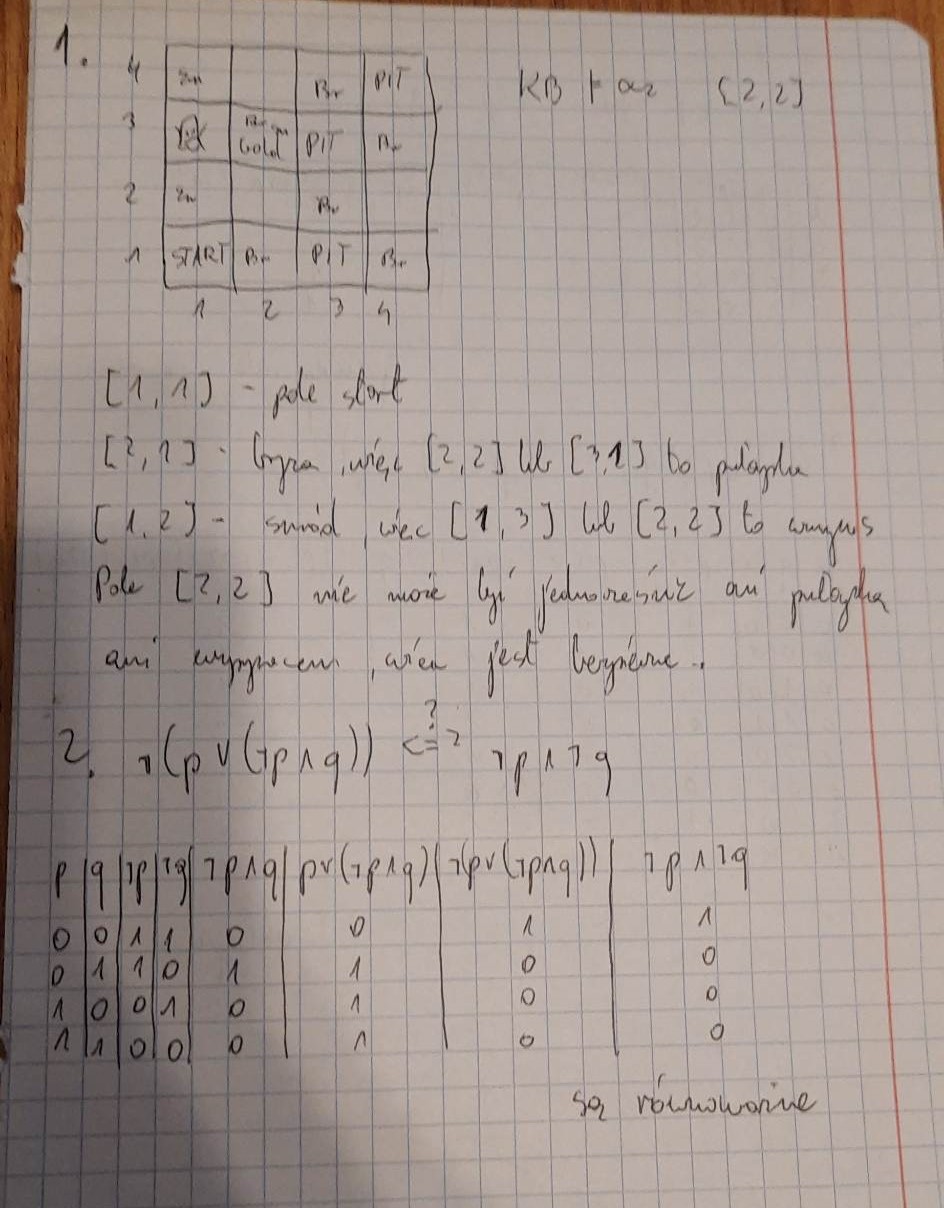 1.
4 Sm Br PIT
3 Gold PIT Br
2 Sm Br
1 START Br PIT Br
1 2 3 4
KB ⊢ α2 [2,2]
[1,1] - pole start
[2,1] - bryza, więc [2,2] lub [3,1] to pułapka
[1,2] - smród, więc [1,3] lub [2,2] to wumpus
Pole [2,2] nie może być jednocześnie ani pułapka
ani wumpusem, więc jest bezpieczne.
2. ¬(p ∨ (¬p ∧ q)) <=> ? ¬p ∧ ¬q
p | q | ¬p | ¬q | ¬p∧q | p∨(¬p∧q) | ¬(p∨(¬p∧q)) | ¬p ∧ ¬q
0 0 1 1 0 0 1 1
0 1 1 0 1 1 0 0
1 0 0 1 0 1 0 0
1 1 0 0 0 1 0 0
są równoważne